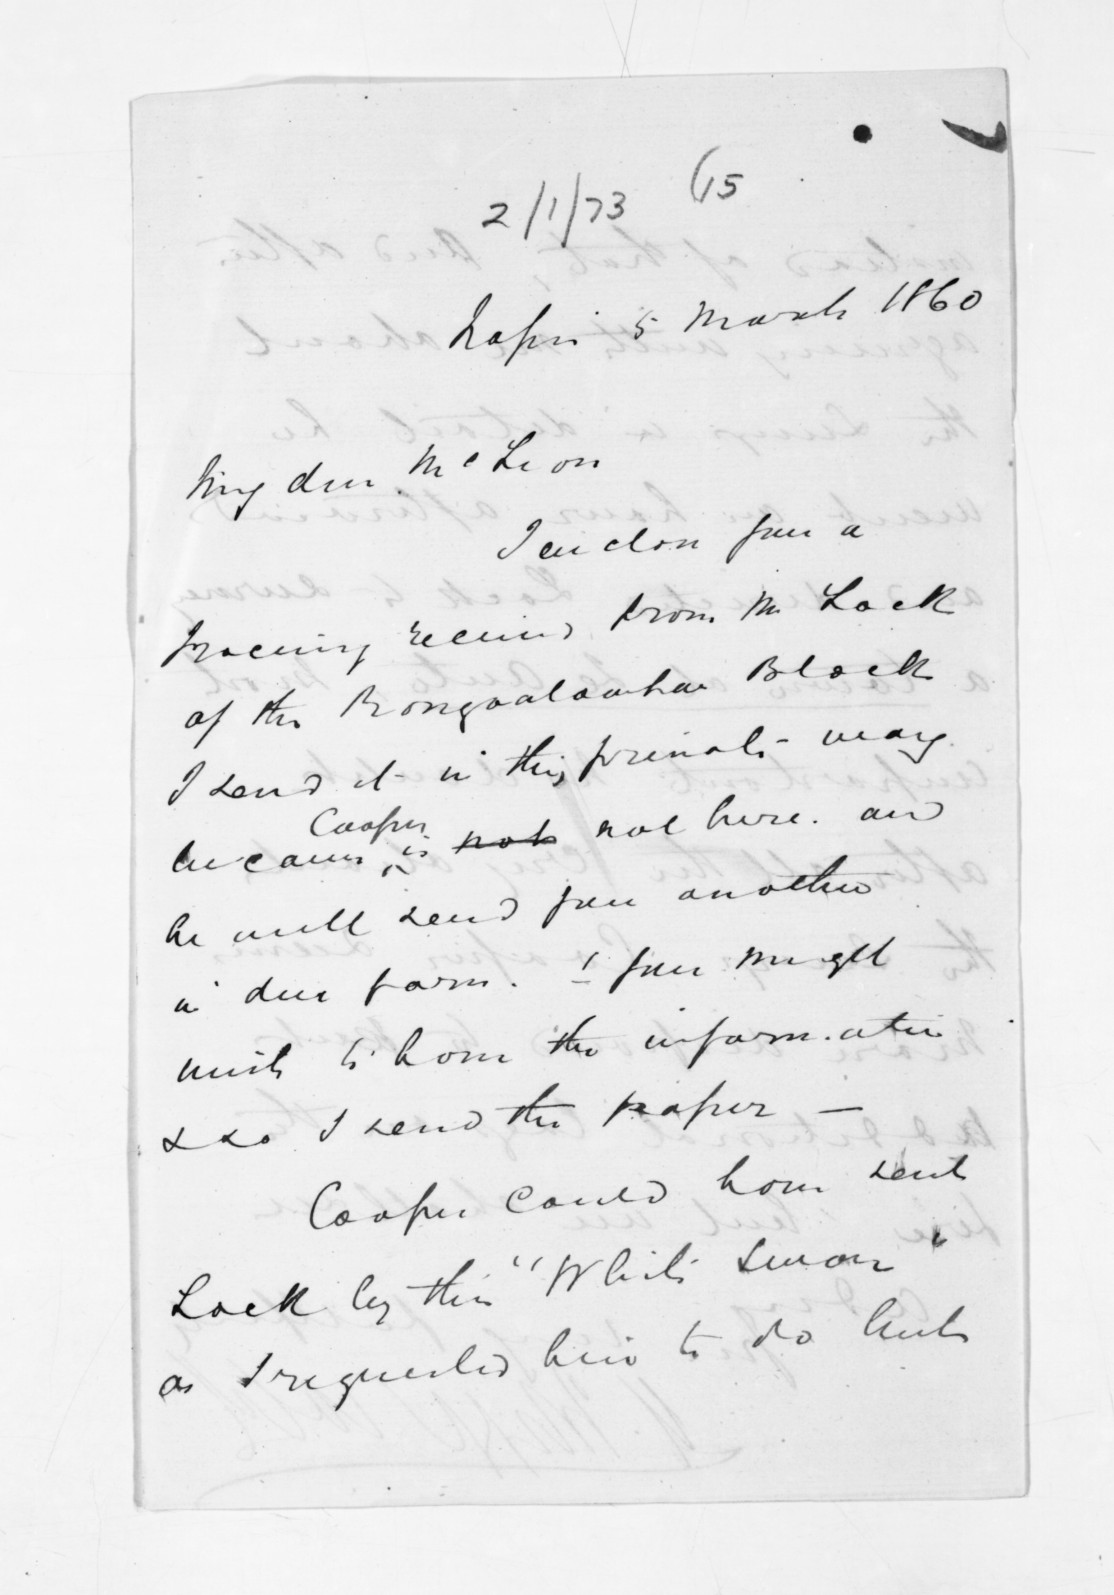 2/1/73 (15
Napier 5 March 1860
My dear McLean
I enclose you a
tracing received from Mr Lock
of the
Block
I send it in this private way
because Cooper is not not here. and
he will send you another
in due form. I you might
wish to have the information
so I send the paper —
Cooper could have sent
Lock by the "White Swan"
as I requested him to do but